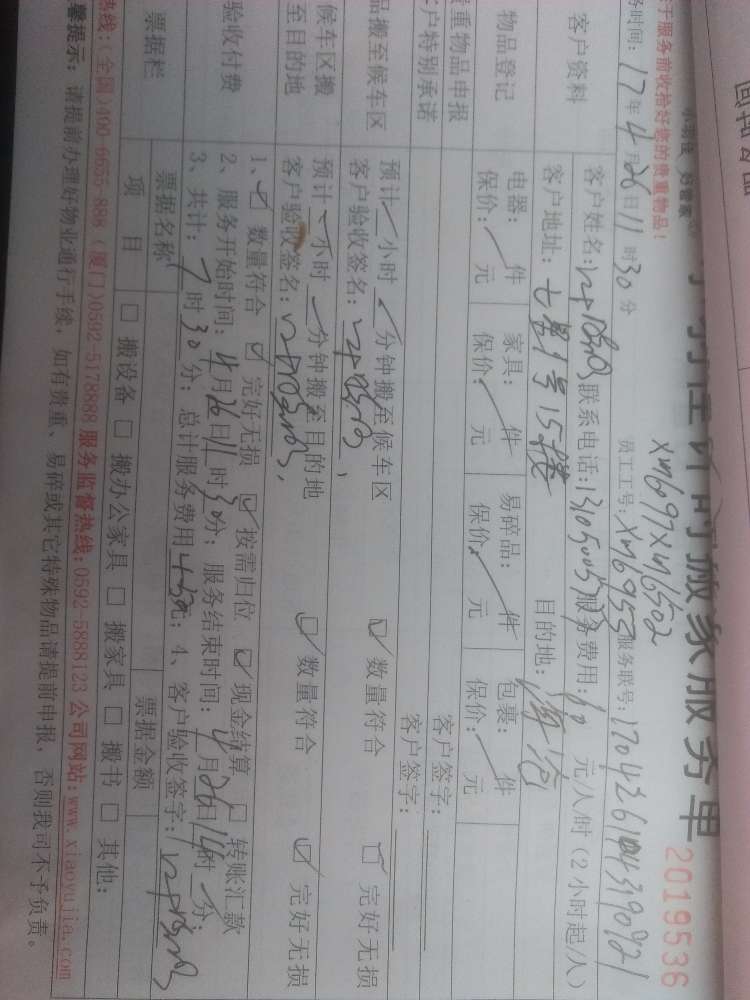 搬家服务单
2019536
于服务前收拾好您的贵重物品!
XM6097 XM6502
务时间: 17年4月26日11时30分
员工工号: XM6955
服务联号:
客户资料
客户姓名:
联系电话:
服务费用: 60 元/人/时(2小时起/人)
客户地址: 七星1号15楼
目的地: 海沧
物品登记
电器: 件
家具: 件
易碎品: 件
包裹: 件
保价: 元
保价: 元
保价: 元
保价: 元
贵重物品申报
客户签字:
客户特别承诺
客户签字:
品搬至候车区
预计 小时 分钟搬至候车区
☑数量符合
☑完好无损
客户验收签名:
候车区搬至目的地
预计 小时 分钟搬至目的地
☑数量符合
☑完好无损
客户验收签名:
验收付费
1、☑数量符合 ☑完好无损 ☑按需归位 ☑现金结算 □转账汇款
2、服务开始时间: 4月26日11时30分; 服务结束时间: 4月26日14时 分;
3、共计: 7时30分; 总计服务费用450元; 4、客户验收签字:
票据栏
票据名称
票据金额
项目
□搬设备 □搬办公家具 □搬家具 □搬书 □其他:
热线:(全国)400-6655-888 (厦门)0592-5178888 服务监督热线:0592-5888123 公司网站:www.xiaoyujia.com
馨提示: 请提前办理好物业通行手续, 如有贵重、易碎或其它特殊物品请提前申报, 否则我司不予负责。